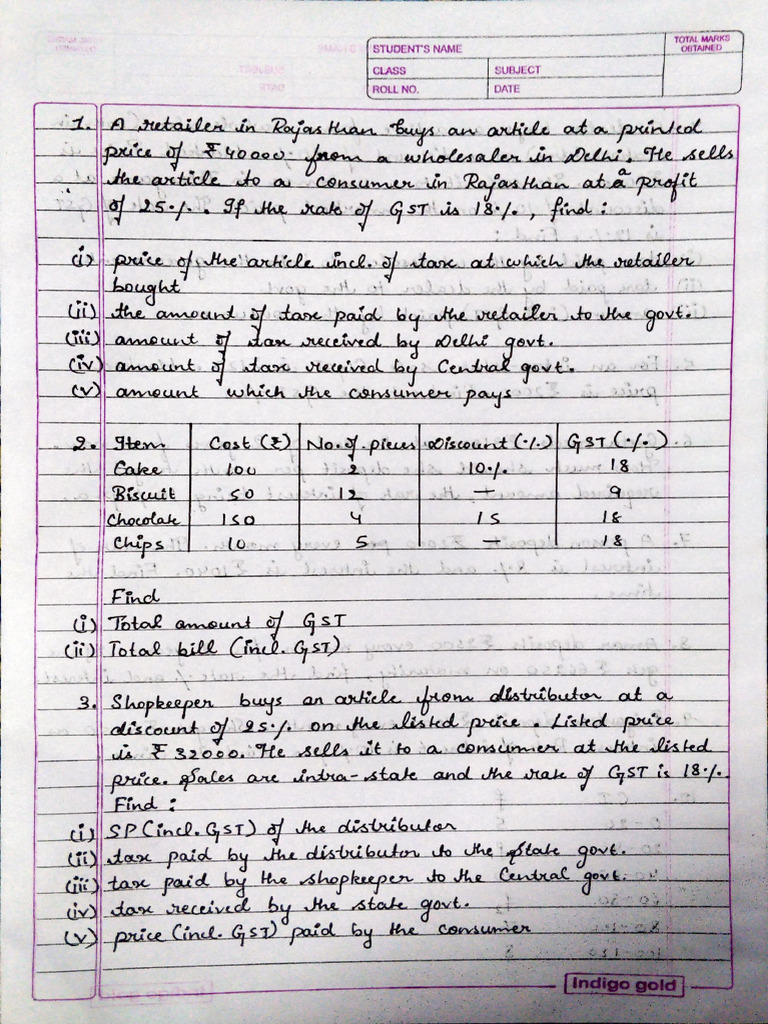 STUDENT'S NAME
TOTAL MARKS OBTAINED
CLASS SUBJECT
ROLL NO. DATE
1. A retailer in Rajasthan buys an article at a printed
price of ₹ 40000 from a wholesaler in Delhi. He sells
the article to a consumer in Rajasthan at a profit
of 25%. If the rate of GST is 18%, find :
(i) price of the article incl. of tax at which the retailer
bought
(ii) the amount of tax paid by the retailer to the govt.
(iii) amount of tax received by Delhi govt.
(iv) amount of tax received by Central govt.
(v) amount which the consumer pays
2. Item Cost (₹) No. of pieces Discount (%) GST (%)
Cake 100 2 10% 18
Biscuit 50 12 — 9
Chocolate 150 4 15 18
Chips 10 5 — 18
Find
(i) Total amount of GST
(ii) Total bill (incl. GST)
3. Shopkeeper buys an article from distributor at a
discount of 25% on the listed price. Listed price
is ₹ 32000. He sells it to a consumer at the listed
price. Sales are intra-state and the rate of GST is 18%.
Find :
(i) SP (incl. GST) of the distributor
(ii) tax paid by the distributor to the State govt.
(iii) tax paid by the shopkeeper to the Central govt.
(iv) tax received by the state govt.
(v) price (incl. GST) paid by the consumer
Indigo gold